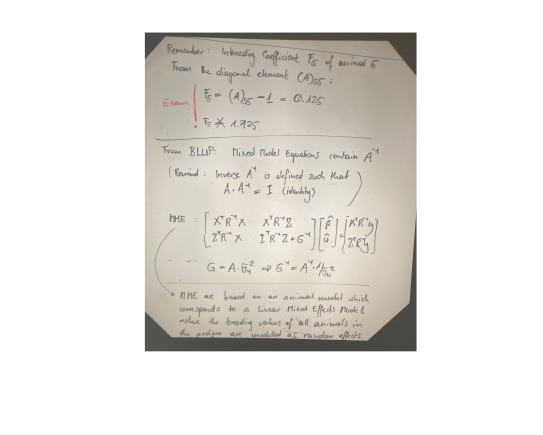 Remember: Inbreeding Coefficient F₅ of animal 5
From the diagonal element (A)₅₅ :
Exam ! F₅ = (A)₅₅ - 1 = 0.125
F₅ ≠ 1.125
From BLUP: Mixed Model Equations contain A⁻¹
(Remind: Inverse A⁻¹ is defined such that
A · A⁻¹ = I (identity) )
MME : [ XᵀR⁻¹X XᵀR⁻¹Z ] [ β̂ ] = [ XᵀR⁻¹y ]
[ ZᵀR⁻¹X ZᵀR⁻¹Z + G⁻¹ ] [ û ] [ ZᵀR⁻¹y ]
G = A · σᵤ² ⇒ G⁻¹ = A⁻¹ · 1/σᵤ²
MME are based on an animal model which
corresponds to a Linear Mixed Effects Model
the breeding values of all animals in
the pedigree are modelled as random effects.